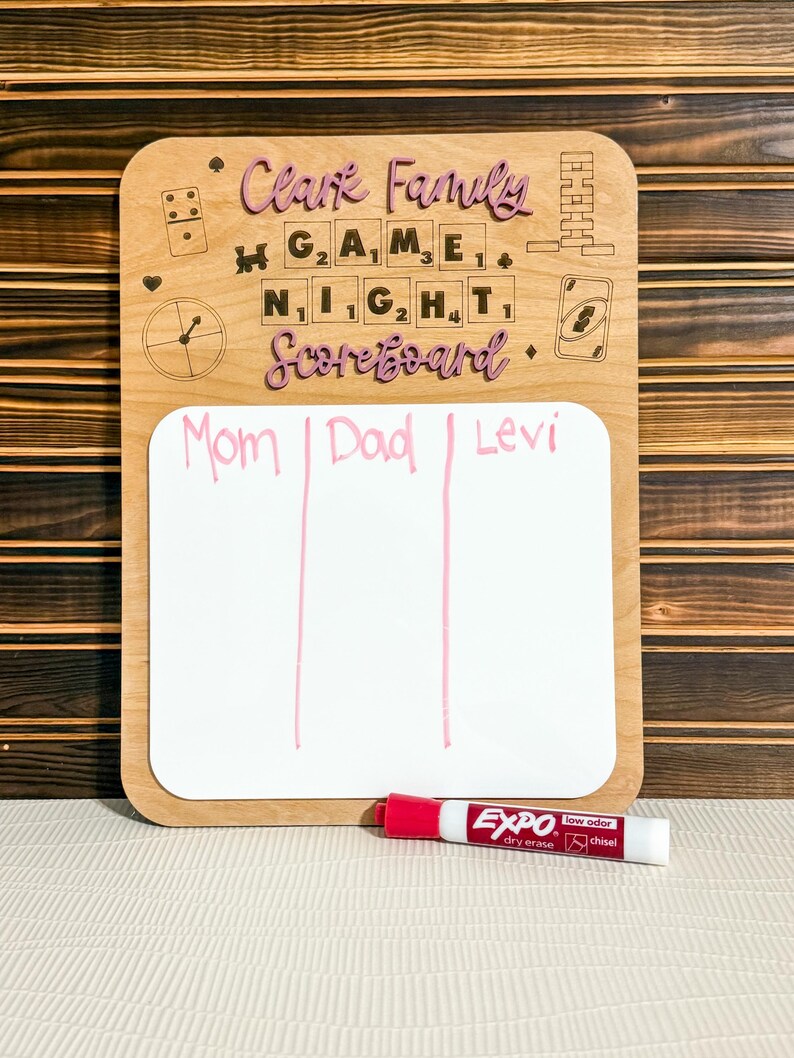 Clark Family
G2 A1 M3 E1
N1 I1 G2 H4 T1
Scoreboard
Mom | Dad | Levi
EXPO® low odor
dry erase chisel